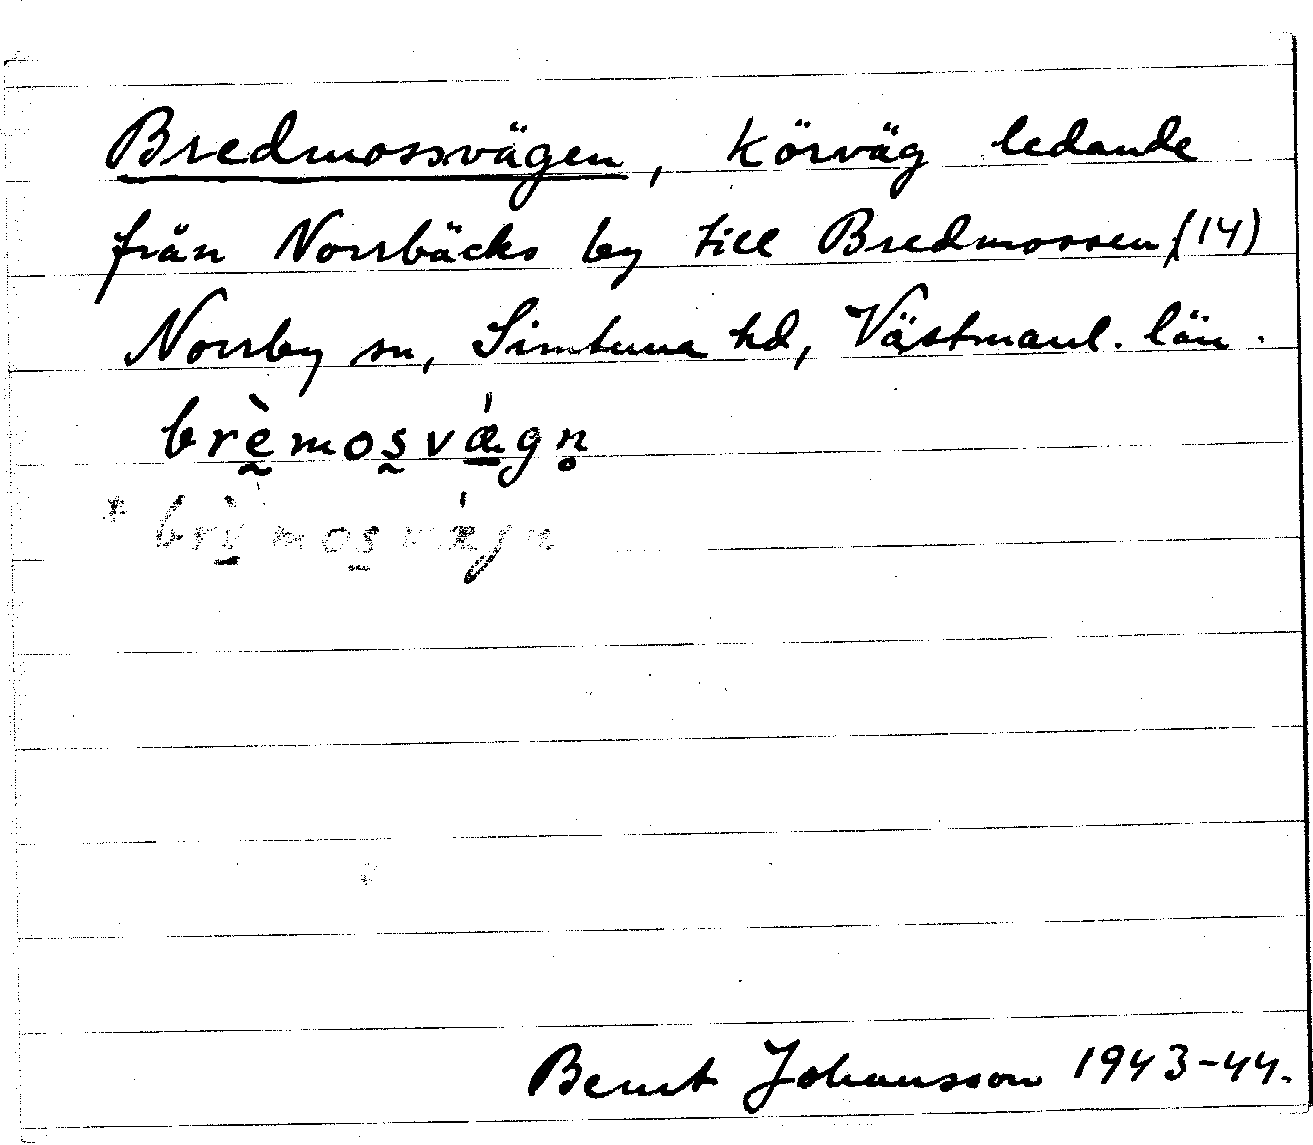 Bredmossvägen, körväg ledande
från Norrbäcks by till Bredmossen (14)
Norrby sn, Simtuna hd, Västmanl. län.
brḛ̀mos̰vǽ̱gn̥
* brỳ̱mos̱vǽgn
Bernt Johansson 1943-44.